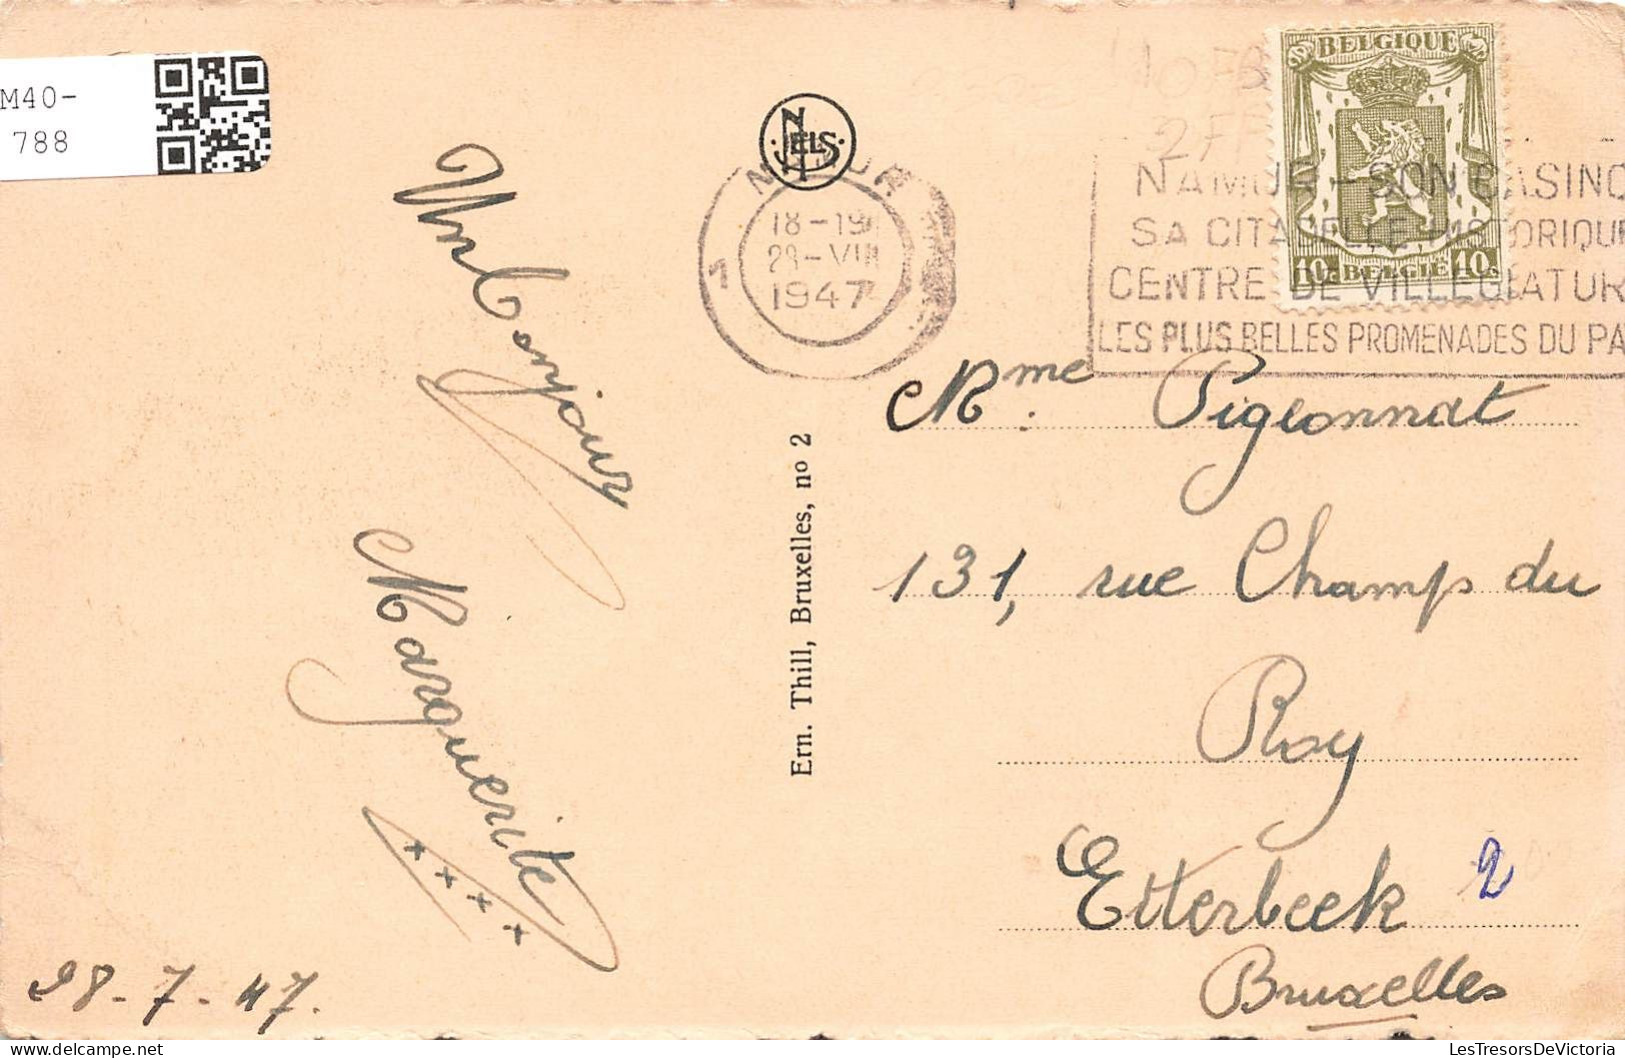 M40-
788
NELS
NAMUR
18-19
28-VII
1947
1
BELGIQUE
10c BELGIË 10c
NAMUR - SON CASINO
SA CITADELLE HISTORIQUE
CENTRE DE VILLEGIATUR
LES PLUS BELLES PROMENADES DU PA
Un bonjour
Marguerite
28-7-47.
Ern. Thill, Bruxelles, no 2
Mme. Pigeonnat
131, rue Champs du
Roy
Etterbeek
2
Bruxelles
LesTresorsDeVictoria